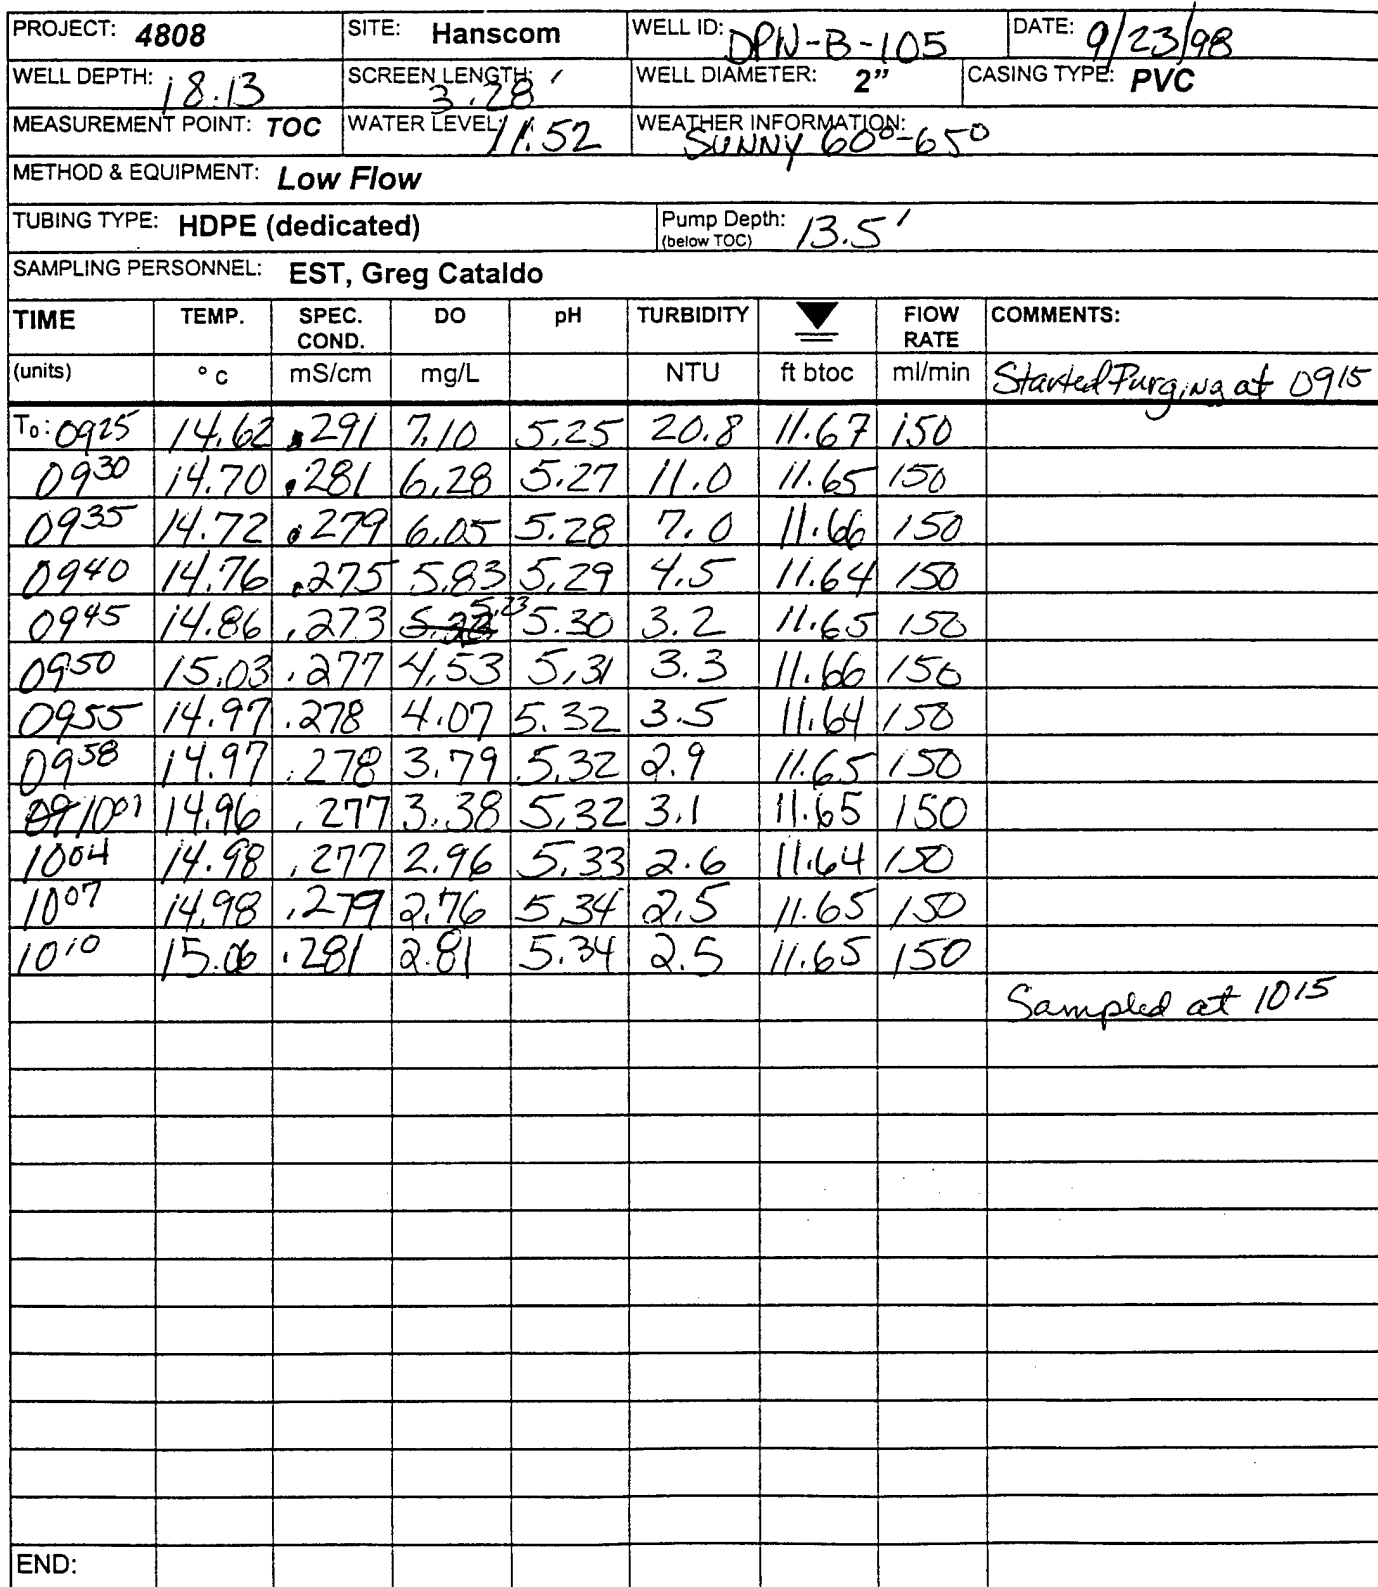 PROJECT: 4808 SITE: Hanscom WELL ID: DPW-B-105 DATE: 9/23/98
WELL DEPTH: 18.13 SCREEN LENGTH: 3.28' WELL DIAMETER: 2" CASING TYPE: PVC
MEASUREMENT POINT: TOC WATER LEVEL: 11.52 WEATHER INFORMATION: SUNNY 60°-65°
METHOD & EQUIPMENT: Low Flow
TUBING TYPE: HDPE (dedicated) Pump Depth: (below TOC) 13.5'
SAMPLING PERSONNEL: EST, Greg Cataldo
TIME TEMP. SPEC. COND. DO pH TURBIDITY FlOW RATE COMMENTS:
(units) ° c mS/cm mg/L NTU ft btoc ml/min Started Purging at 0915
To: 0925 14.62 .291 7.10 5.25 20.8 11.67 150
0930 14.70 .281 6.28 5.27 11.0 11.65 150
0935 14.72 .279 6.05 5.28 7.0 11.66 150
0940 14.76 .275 5.83 5.29 4.5 11.64 150
0945 14.86 .273 5.23 5.30 3.2 11.65 150
0950 15.03 .277 4.53 5.31 3.3 11.66 150
0955 14.97 .278 4.07 5.32 3.5 11.64 150
0958 14.97 .278 3.79 5.32 2.9 11.65 150
1001 14.96 .277 3.38 5.32 3.1 11.65 150
1004 14.98 .277 2.96 5.33 2.6 11.64 150
1007 14.98 .279 2.76 5.34 2.5 11.65 150
1010 15.06 .281 2.81 5.34 2.5 11.65 150
Sampled at 1015
END: